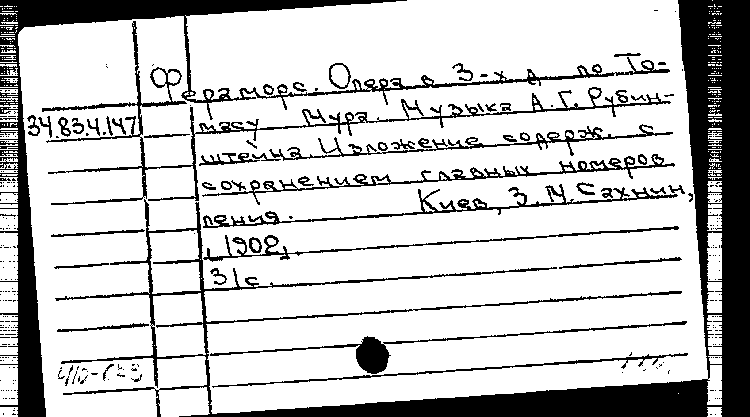 Фераморс. Опера в 3-х д. по То-
34.83.4.147
масу Муру. Музыка А. Г. Рубин-
штейна. Изложение содерж. с
сохранением главных номеров
пения. Киев, З. М. Сахнин,
[1902].
31 с.